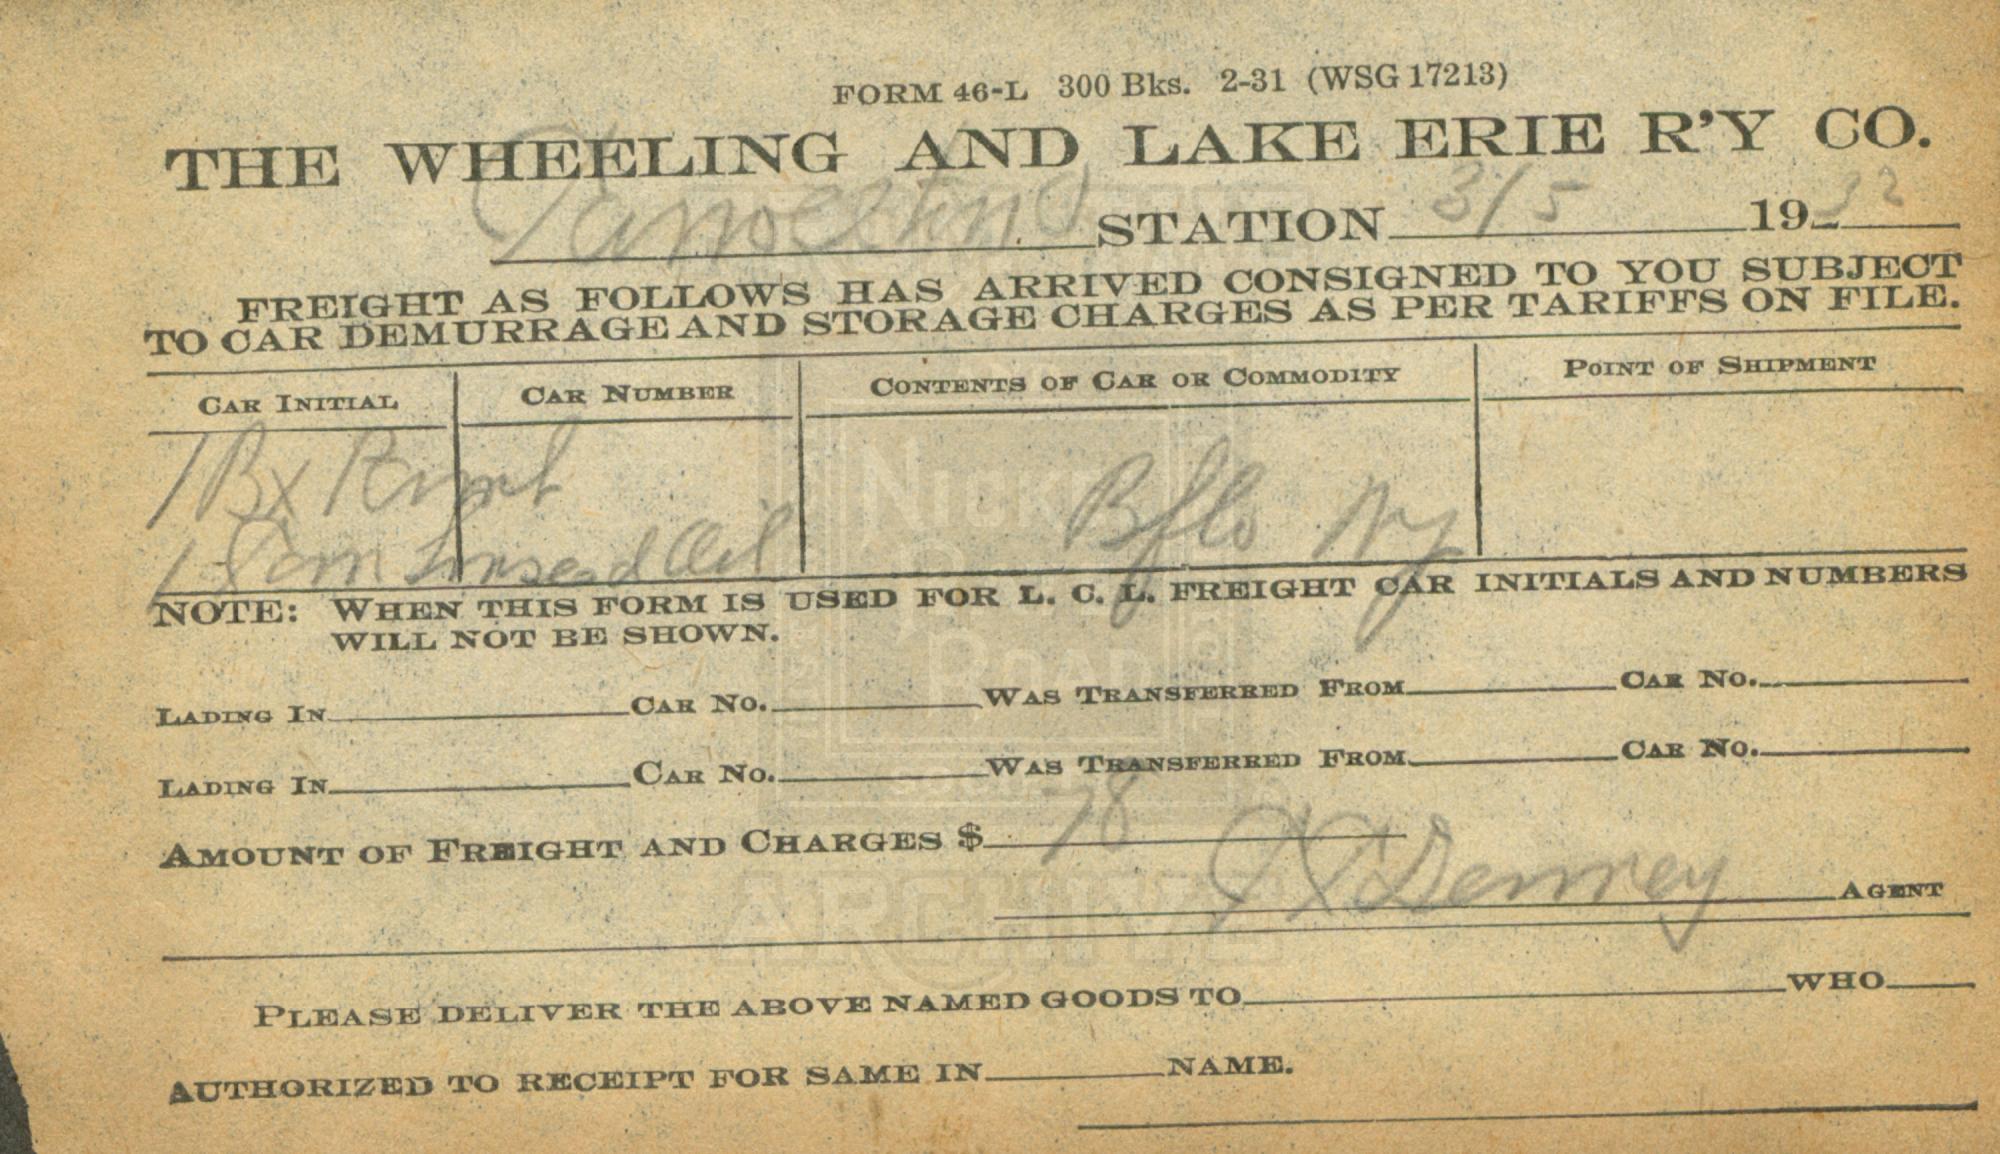 FORM 46-L 300 Bks. 2-31 (WSG 17213)
THE WHEELING AND LAKE ERIE R'Y CO.
STATION 3/5 1932
FREIGHT AS FOLLOWS HAS ARRIVED CONSIGNED TO YOU SUBJECT
TO CAR DEMURRAGE AND STORAGE CHARGES AS PER TARIFFS ON FILE.
CAR INITIAL CAR NUMBER CONTENTS OF CAR OR COMMODITY POINT OF SHIPMENT
1 Bx
Bflo NY
1 Linseed Oil
NOTE: WHEN THIS FORM IS USED FOR L. C. L. FREIGHT CAR INITIALS AND NUMBERS
WILL NOT BE SHOWN.
LADING IN CAR NO. WAS TRANSFERRED FROM CAR NO.
LADING IN CAR NO. WAS TRANSFERRED FROM CAR NO.
AMOUNT OF FREIGHT AND CHARGES $ 78
Denney AGENT
PLEASE DELIVER THE ABOVE NAMED GOODS TO WHO
AUTHORIZED TO RECEIPT FOR SAME IN NAME.
NICKEL
PLATE
ROAD
ARCHIVE